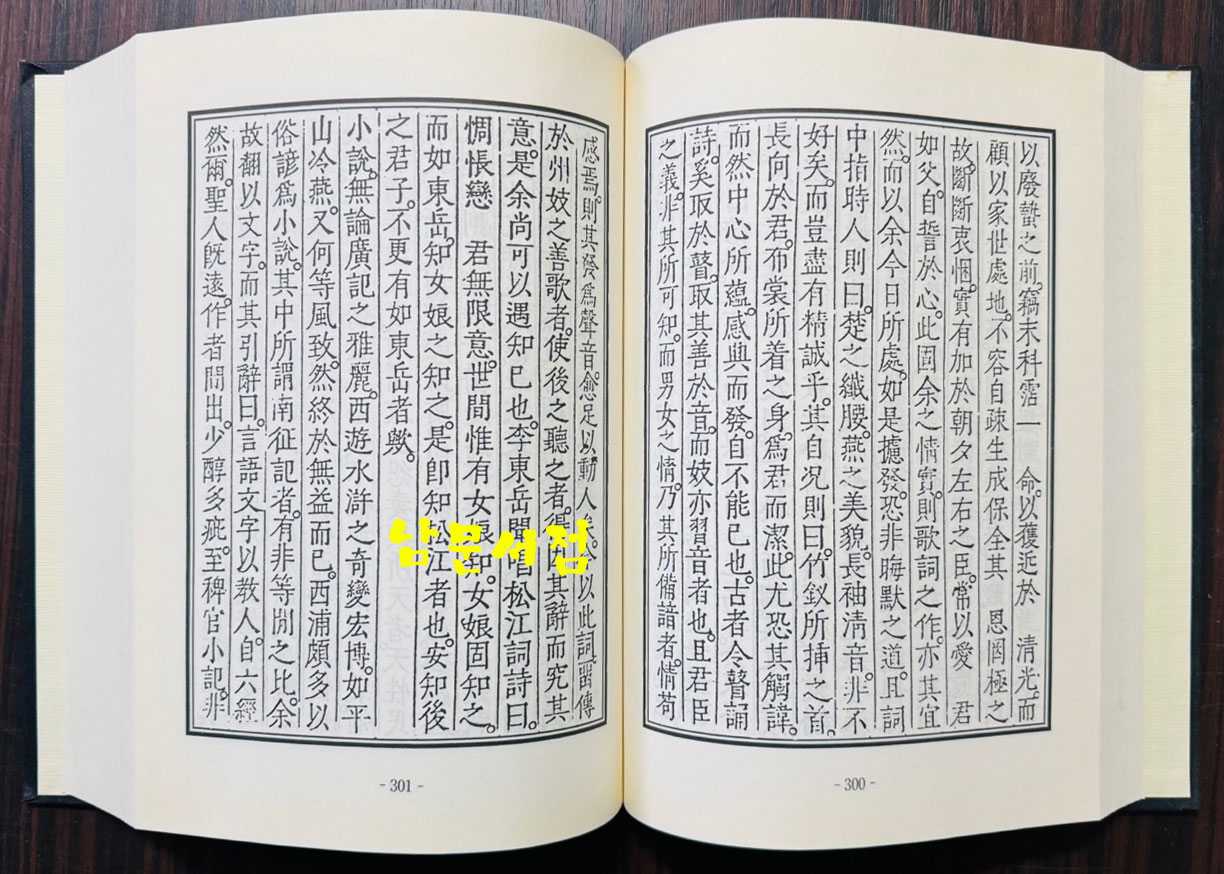 以廢蟄之前竊末科霑一 命以獲近於 淸光而
顧以家世處地不容自疎生成保全其 恩罔極之
故斷斷衷悃實有加於朝夕左右之臣常以愛 君
如父自誓於心此固余之情實則歌詞之作亦其宜
然而以余今日所處如是攄發恐非晦默之道且詞
中指時人則曰楚之纖腰燕之美貌長袖淸音非不
好矣而豈盡有精誠乎其自况則曰竹釵所揷之首
長向於君布裳所着之身爲君而潔此尤恐其觸諱
而然中心所蘊感興而發自不能已也古者令瞽誦
詩奚取於瞽取其善於音而妓亦習音者也且君臣
之義非其所可知而男女之情乃其所備諳者情苟
- 300 -
感焉則其發爲聲音愈足以動人矣 以此詞 傳
於州妓之善歌者使後之聽之者得因其辭而究其
意是余尚可以遇知己也李東岳聞唱松江詞詩曰
惆悵戀 君無限意世間惟有女娘知女娘固知之
而如東岳知女娘之知之是卽知松江者也安知後
之君子不更有如東岳者歟
小說無論廣記之雅麗西遊水滸之奇變宏博如平
山冷燕又何等風致然終於無益而已西浦頗多以
俗諺爲小說其中所謂南征記者有非等閒之比余
故翻以文字而其引辭曰言語文字以敎人自六經
然爾聖人旣遠作者間出少醇多疵至稗官小記非
- 301 -
남문서점